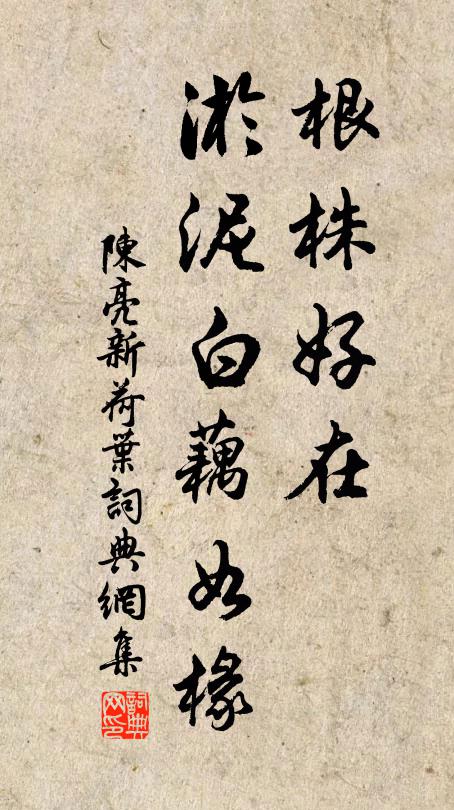 根株好在
淤泥白藕如椽
陳亮新荷葉詞典網集
詞典网印